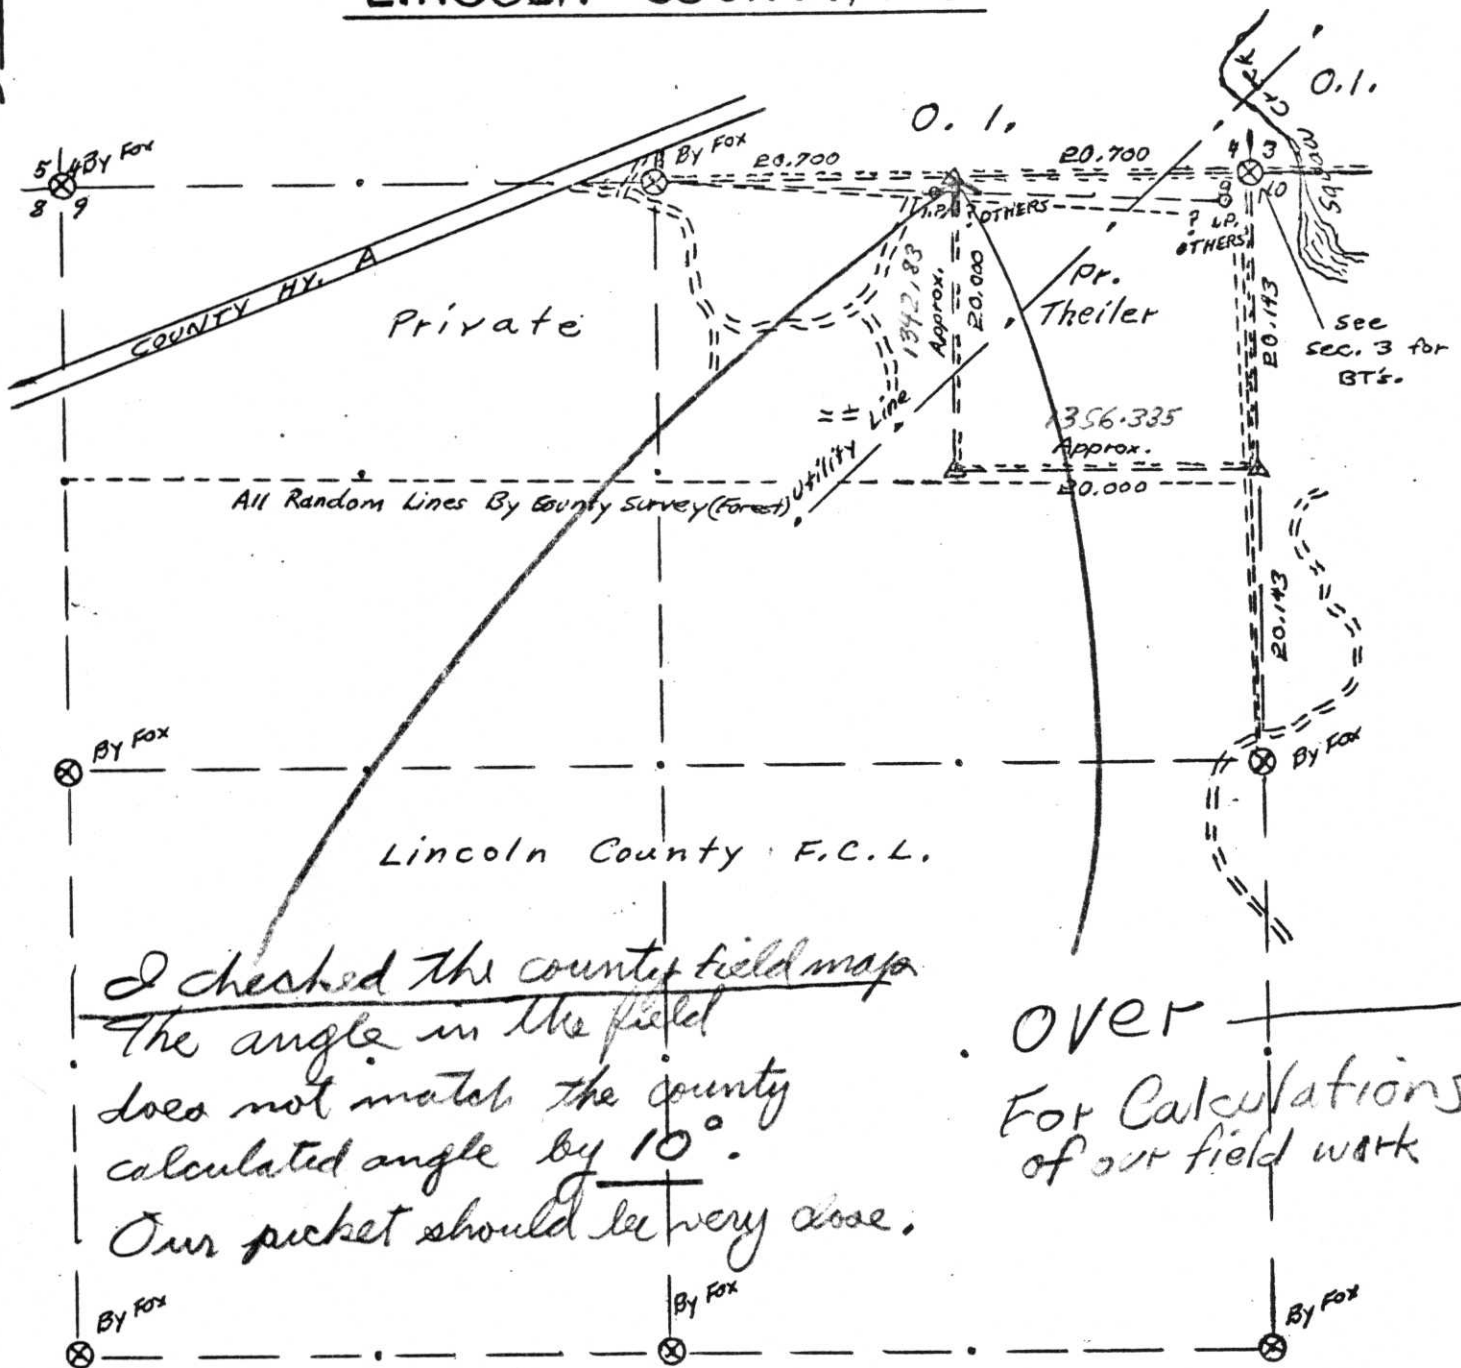 O.I.
Creek
O.I.
5 4 By Fox
8 9
By Fox
20.700
20.700
4 3
9 10
I.P. ? OTHERS
? I.P.
OTHERS
COUNTY HY. A
Private
1342.83
Approx.
20.000
Pr.
Theiler
20.143
see
sec. 3 for
BT's.
== Line
Utility
1356.335
Approx.
20.000
All Random Lines By County Survey (Forest)
20.143
By Fox
By Fox
Lincoln County F.C.L.
I checked the county field map
The angle in the field
does not match the county
calculated angle by 10°.
Our picket should be very close.
Over
For Calculations
of our field work
By Fox
By Fox
By Fox